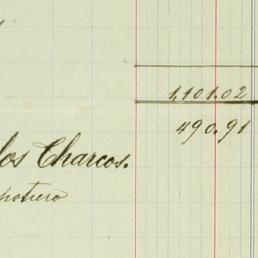 1,101.02
490.91
los Charcos.
potrero